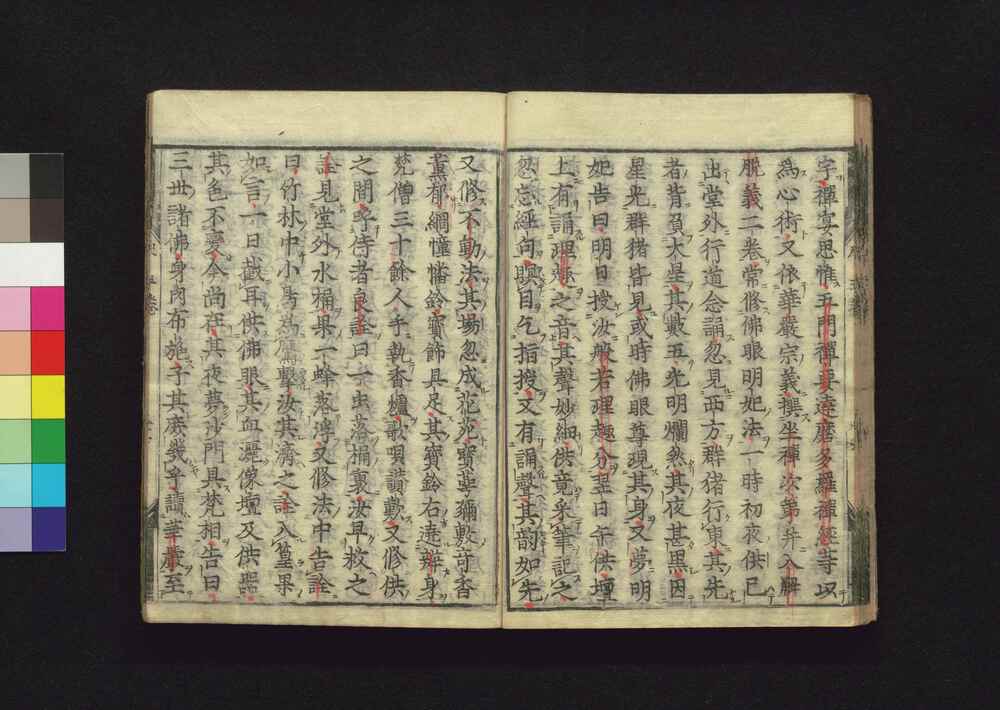 字禪宴思惟五門禪要達磨多羅禪經等以
為心術又依華嚴宗義撰坐禪次第并入解
脫義二卷常修佛眼明妃法一時初夜供已
出堂外行道念誦忽見西方群猪行東其先
者背負大星其數五光明爛然其夜甚黑因
星光群猪皆見或時佛眼尊現其身又夢明
妃告曰明日授汝般若理趣分翌日午供壇
上有誦理趣之音其聲妙細供竟采筆記之
忽忘經句瞑目乞指授又有誦聲其韵如先
又修不動法其場忽成花苑寶華彌敷奇香
薰郁綱幢幡鈴寶飾具足其寶鈴右遶辨身
梵僧三十餘人手執香爐歌唄讃歎又修供
之間呼侍者良詮曰一虫落桶裏汝早救之
詮見堂外水桶果一蜂落湻又修法中告詮
曰竹林中小鳥為鷹擊汝其濟之詮入篁果
如言一日截耳供佛眼其血灑像壇及供器
其色不變今尚在其夜夢沙門具梵相告曰
三世諸佛身肉布施子其庶幾乎讀華嚴至